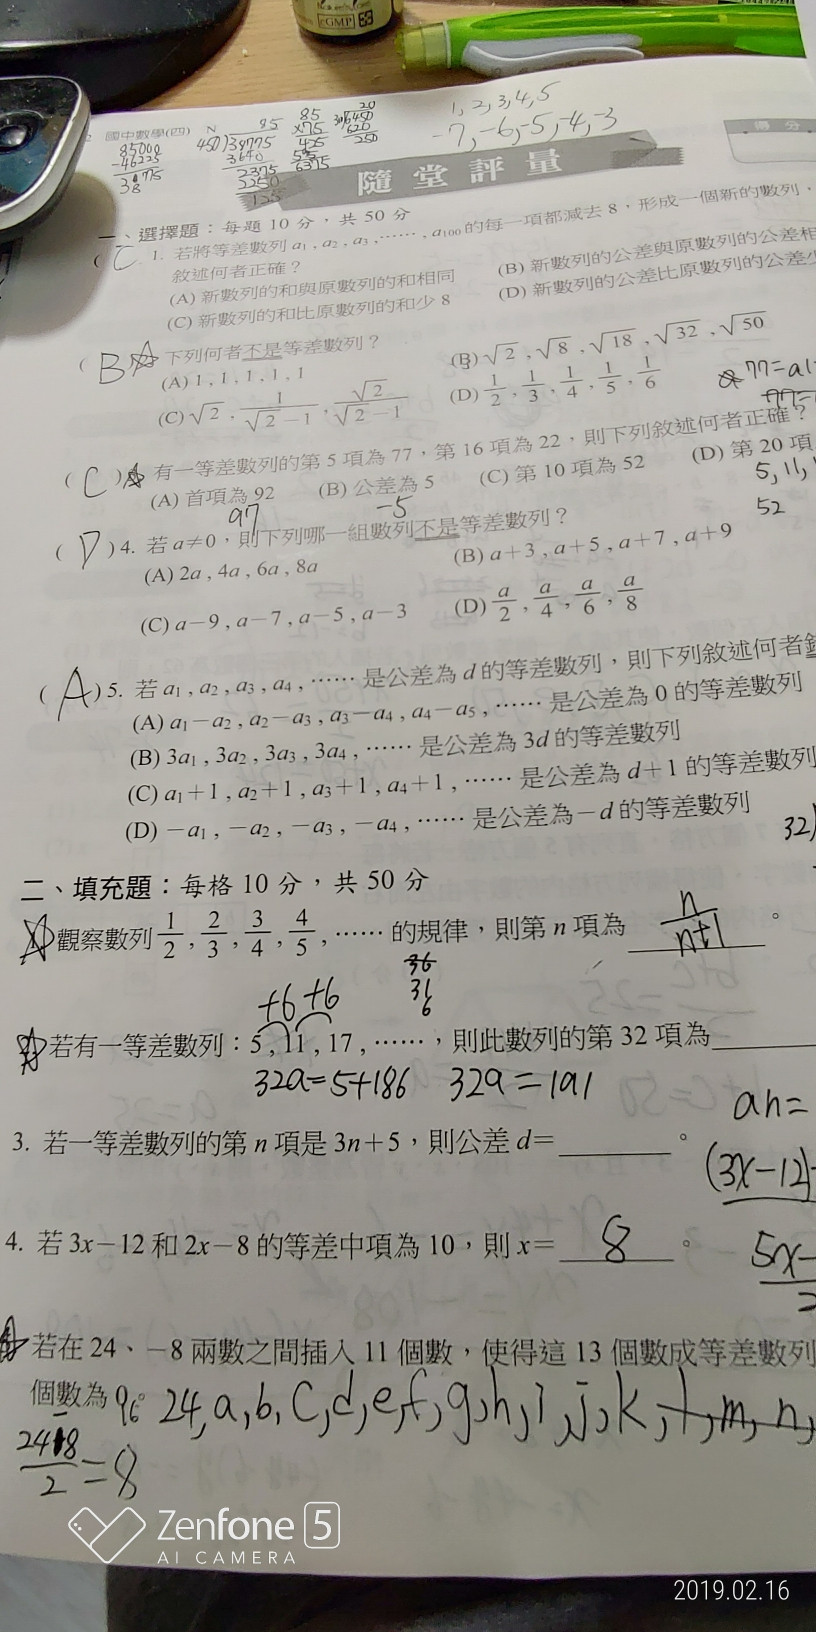 cGMP
1, 2, 3, 4, 5
-7, -6, -5, -4, -3
國中數學(四)
85000
-46225
38775
85
450)38775
3640
2375
2250
125
85
×75
425
6375
20
250
隨堂評量
得分
一、選擇題：每題 10 分，共 50 分
( C 1. 若將等差數列 a₁ , a₂ , a₃ , …… , a₁₀₀ 的每一項都減去 8，形成一個新的數列，
敘述何者正確？
(A) 新數列的和與原數列的和相同 (B) 新數列的公差與原數列的公差相
(C) 新數列的和比原數列的和少 8 (D) 新數列的公差比原數列的公差
( B 下列何者不是等差數列？
(A) 1 , 1 , 1 , 1 , 1 (B) √2 , √8 , √18 , √32 , √50
(C) √2 , 1/(√2−1) , √2/(√2−1) (D) 1/2 , 1/3 , 1/4 , 1/5 , 1/6
77=a1
( C ) 有一等差數列的第 5 項為 77，第 16 項為 22，則下列敘述何者正確？
(A) 首項為 92 (B) 公差為 5 (C) 第 10 項為 52 (D) 第 20 項
97 -5 52
5, 11,
( D ) 4. 若 a≠0，則下列哪一組數列不是等差數列？
(A) 2a , 4a , 6a , 8a (B) a+3 , a+5 , a+7 , a+9
(C) a−9 , a−7 , a−5 , a−3 (D) a/2 , a/4 , a/6 , a/8
( A ) 5. 若 a₁ , a₂ , a₃ , a₄ , …… 是公差為 d 的等差數列，則下列敘述何者錯
(A) a₁−a₂ , a₂−a₃ , a₃−a₄ , a₄−a₅ , …… 是公差為 0 的等差數列
(B) 3a₁ , 3a₂ , 3a₃ , 3a₄ , …… 是公差為 3d 的等差數列
(C) a₁+1 , a₂+1 , a₃+1 , a₄+1 , …… 是公差為 d+1 的等差數列
(D) −a₁ , −a₂ , −a₃ , −a₄ , …… 是公差為−d 的等差數列
32)
二、填充題：每格 10 分，共 50 分
觀察數列 1/2 , 2/3 , 3/4 , 4/5 , …… 的規律，則第 n 項為 n/n+1 。
36
31
6
+6 +6
若有一等差數列：5 , 11 , 17 , ……，則此數列的第 32 項為
32a=5+186 32a=191
an=
3. 若一等差數列的第 n 項是 3n+5，則公差 d= 。
(3x-12)
4. 若 3x−12 和 2x−8 的等差中項為 10，則 x= 8 。
5x-
2
若在 24、−8 兩數之間插入 11 個數，使得這 13 個數成等差數列
個數為 96。 24, a, b, c, d, e, f, g, h, i, j, k, l, m, n,
24-8/2=8
Zenfone 5
AI CAMERA
2019.02.16